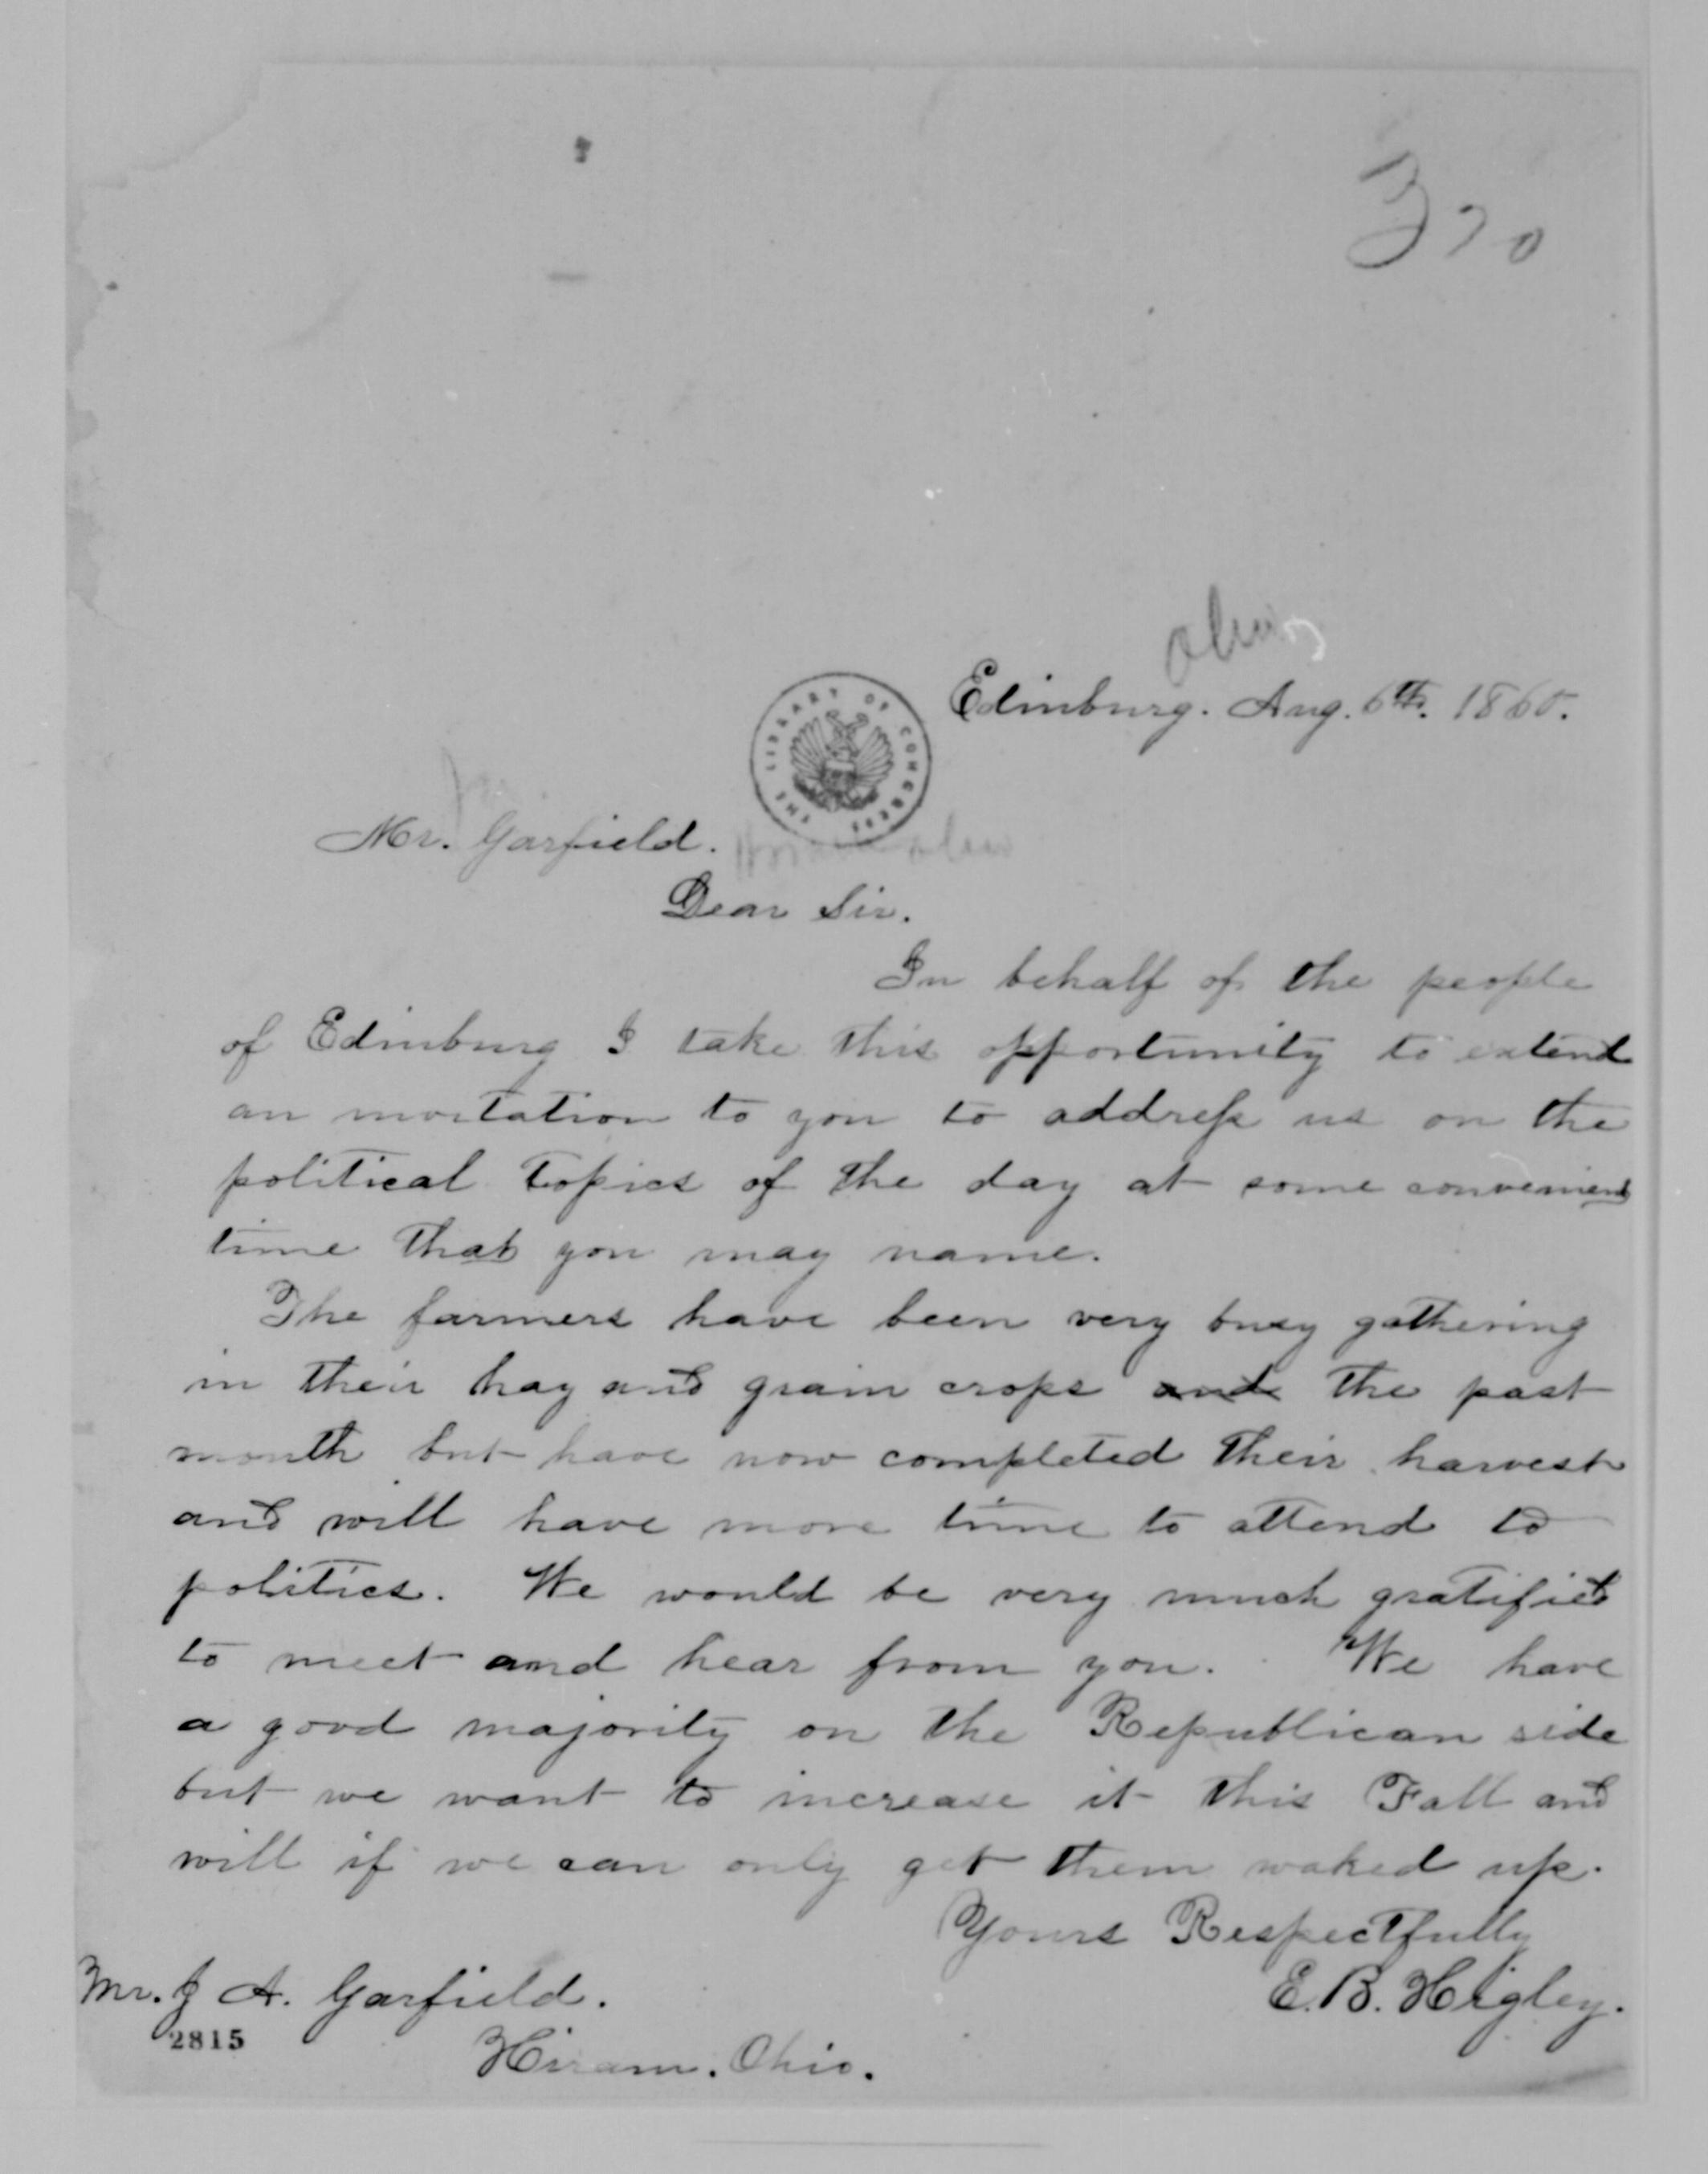 370
Ohio
Edinburg. Aug. 6th. 1860.
THE LIBRARY OF CONGRESS
Mr. Garfield.
Dear Sir.
In behalf of the people
of Edinburg I take this opportunity to extend
an invitation to you to address us on the
political topics of the day at some convenient
time that you may name.
The farmers have been very busy gathering
in their hay and grain crops and the past
month but have now completed their harvest
and will have more time to attend to
politics. We would be very much gratified
to meet and hear from you. We have
a good majority on the Republican side
but we want to increase it this Fall and
will if we can only get them waked up.
Yours Respectfully
E. B. Higley.
Mr. J A. Garfield.
2815
Hiram. Ohio.